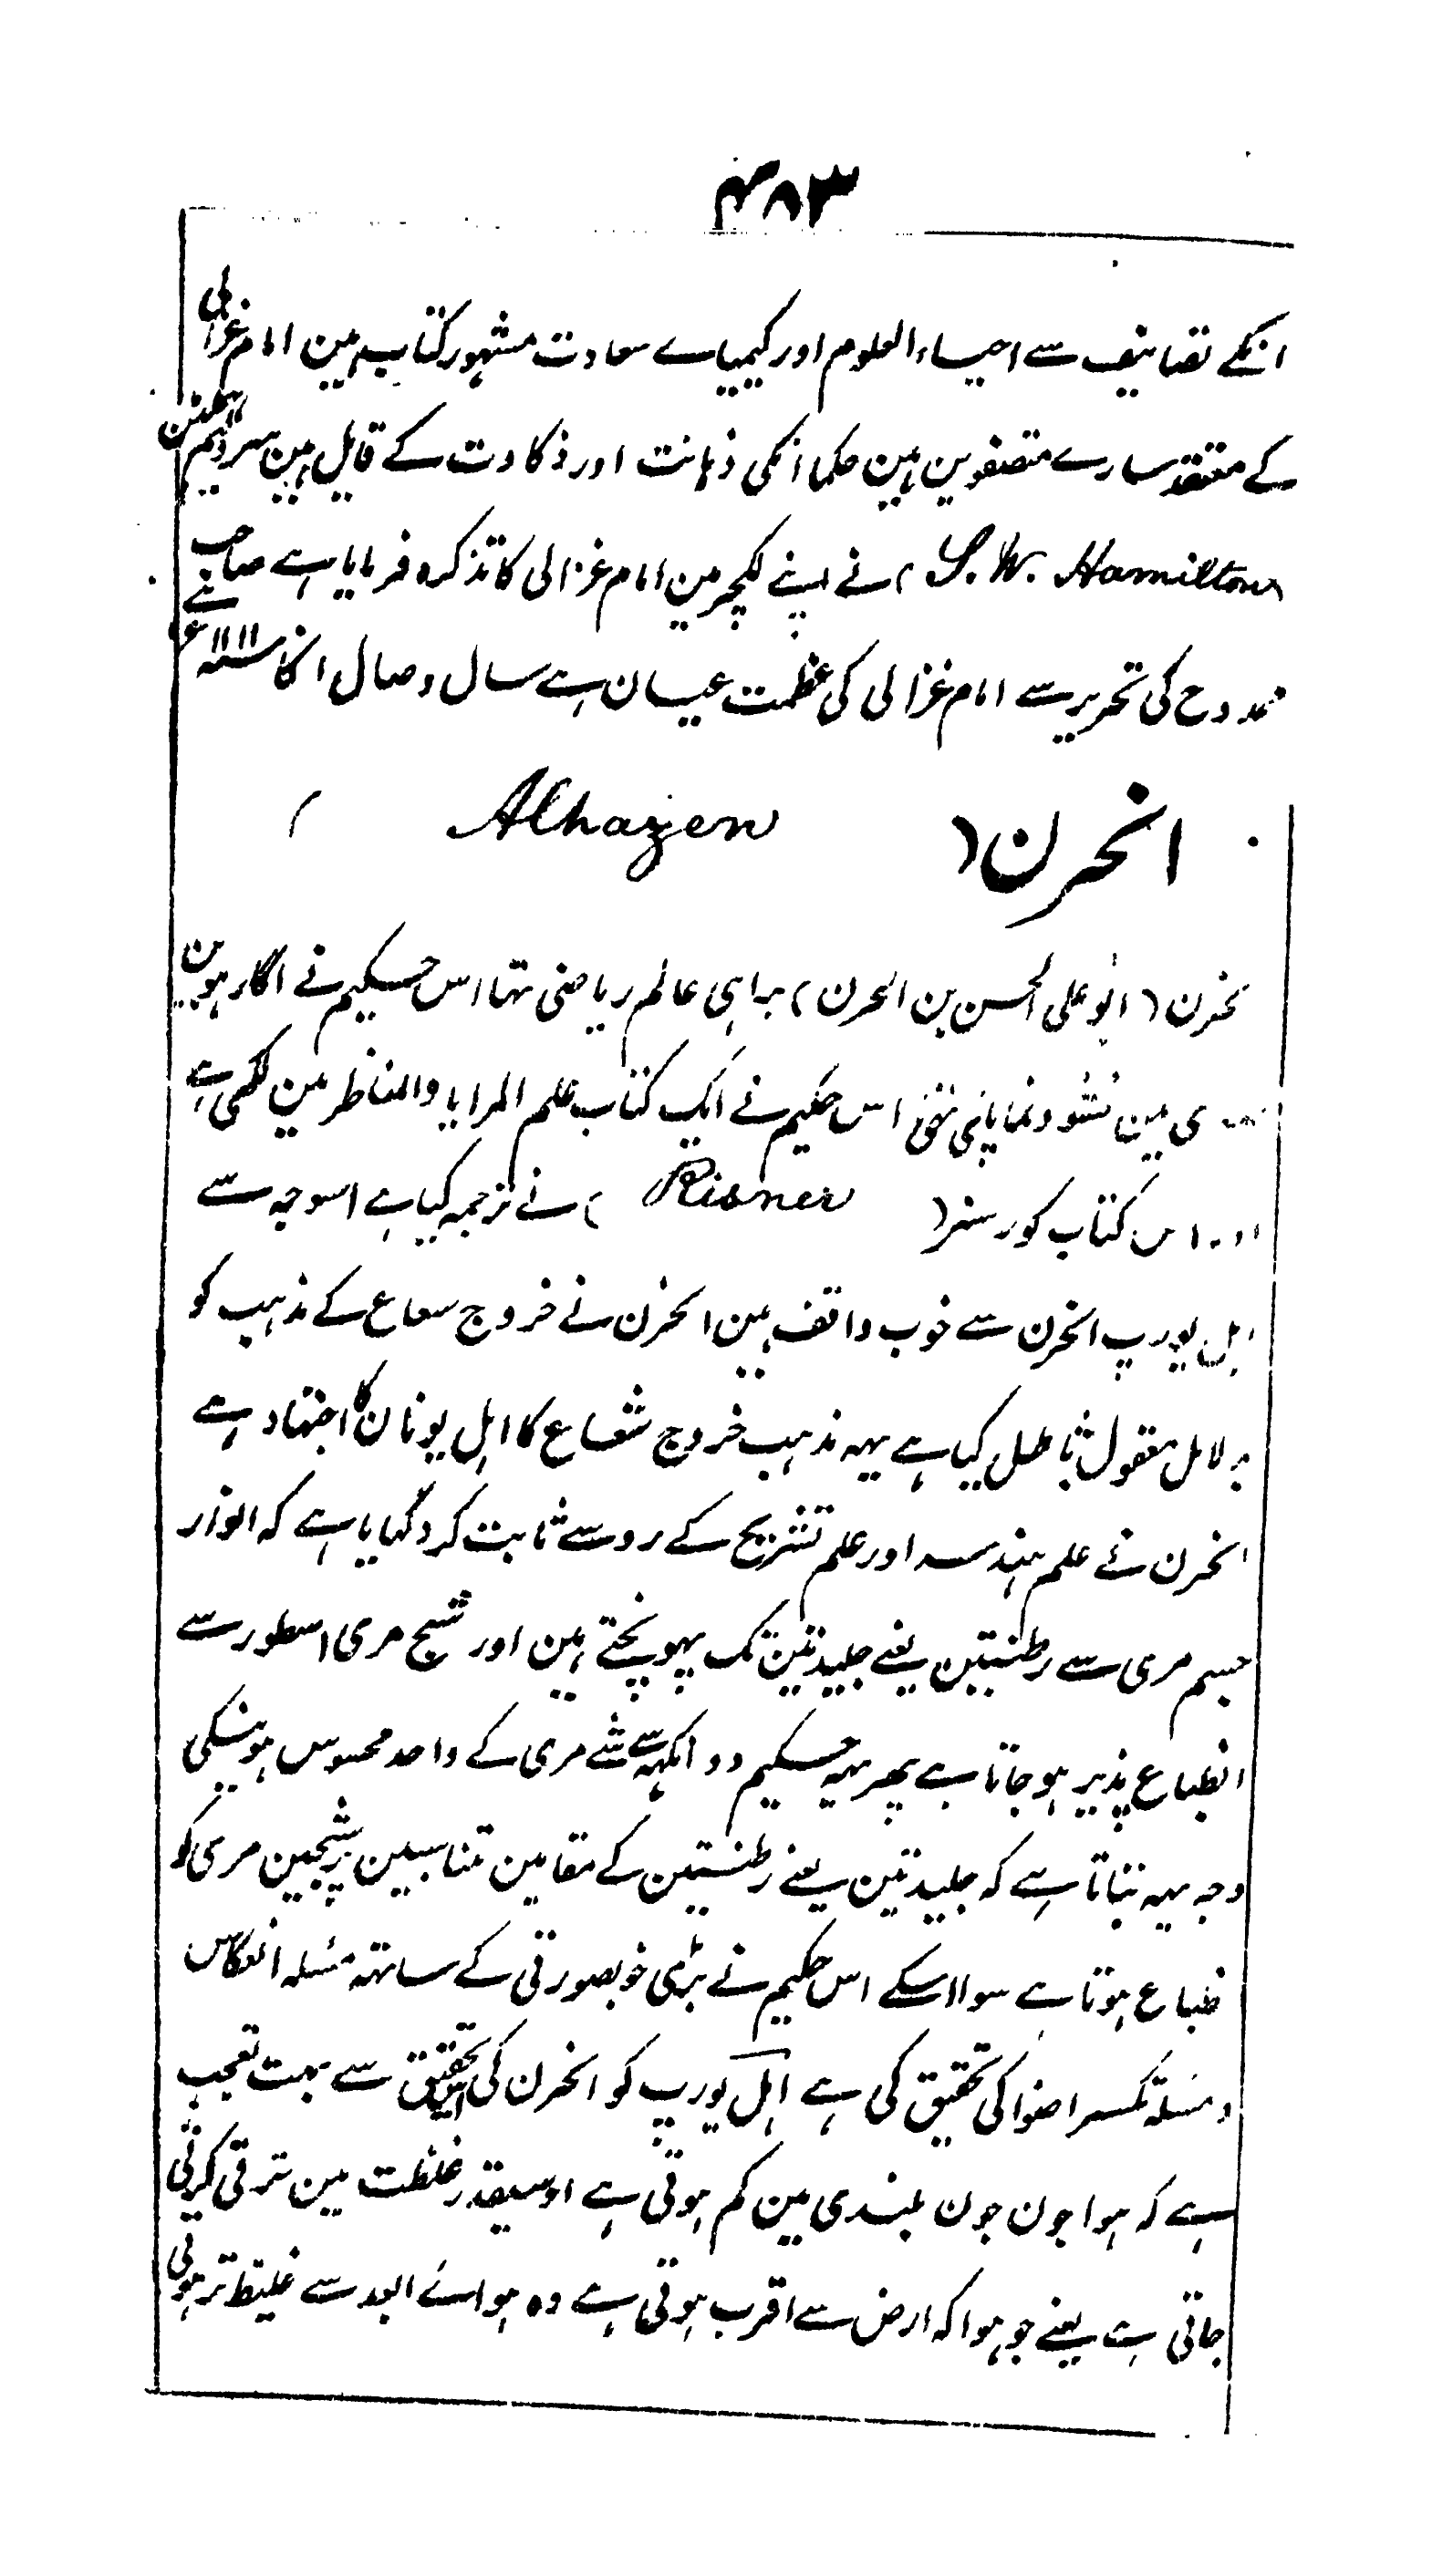 ۴۸۳
انکے تصانیف سے احیاء العلوم اور کیمیاے سعادت مشہور کتاب ہین امام غزالی
کے معتقد سارے متصفوین ہین حکما انکی ذہانت اور ذکاوت کے قایل ہین سر ولیم ہملٹن
( S. W. Hamilton ) نے اپنے لکچر مین امام غزالی کا تذکرہ فرمایا ہے صاحب
ممدوح کی تحریر سے امام غزالی کی عظمت عیان ہے سال وصال انکا ۱۱۱۱ سنہ ء
الخزن ( Alhazen )
الخزن ( ابو علی الحسن بن الخزن ) بڑا ہی عالم ریاضی تہا اس حکیم نے اگارہوین
صدی مین نشو و نما پائی تہی اس حکیم نے ایک کتاب علم المرایا والمناظر مین لکھی ہے
اور اس کتاب کو رسنر ( Risner ) نے ترجمہ کیا ہے اسوجہ سے
اہل یورپ الخزن سے خوب واقف ہین الخزن نے خروج سعاع کے مذہب کو
بدلائل معقول باطل کیا ہے یہہ مذہب خروج شعاع کا اہل یونان کا اجتہاد ہے
الخزن نے علم ہندسہ اور علم تشریح کے رو سے ثابت کر دکہایا ہے کہ انوار
جسم مری سے رطنیتین یعنے جلیدتین تک پہونچتے ہین اور شبح مری اسطور سے
انطباع پذیر ہو جاتا ہے پھر یہہ حکیم دو انکہہ سے شے مری کے واحد محسوس ہونیکی
وجہ یہہ بتاتا ہے کہ جلیدتین یعنے رطنیتین کے مقامین متناسبین پر شبحین مری کو
انطباع ہوتا ہے سوا اسکے اس حکیم نے بڑی خوبصورتی کے ساتہہ مسئلہ انعکاس
و مسئلہ تکسر اضوا کی تحقیق کی ہے اہل یورپ کو الخزن کی اس تحقیق سے بہت تعجب
ہے کہ ہوا جون جون بلندی مین کم ہوتی ہے اوسیقدر غلظت مین ترقی کرتی
جاتی ہے یعنے جو ہوا کہ ارض سے اقرب ہوتی ہے وہ ہوائے ابعد سے غلیظ تر ہوتی